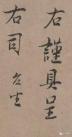 右謹具呈
右司